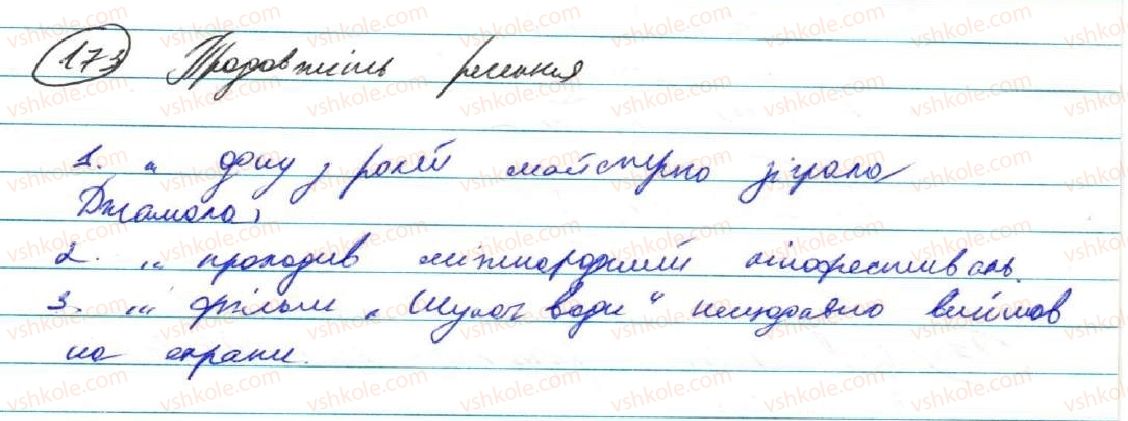 173 Продовжіть речення
1. " одну з ролей майстерно зіграла
Джамала,
2. ... проходив міжнародний кінофестиваль.
3. ... фільм „Шукач води" нещодавно вийшов
на екрани.